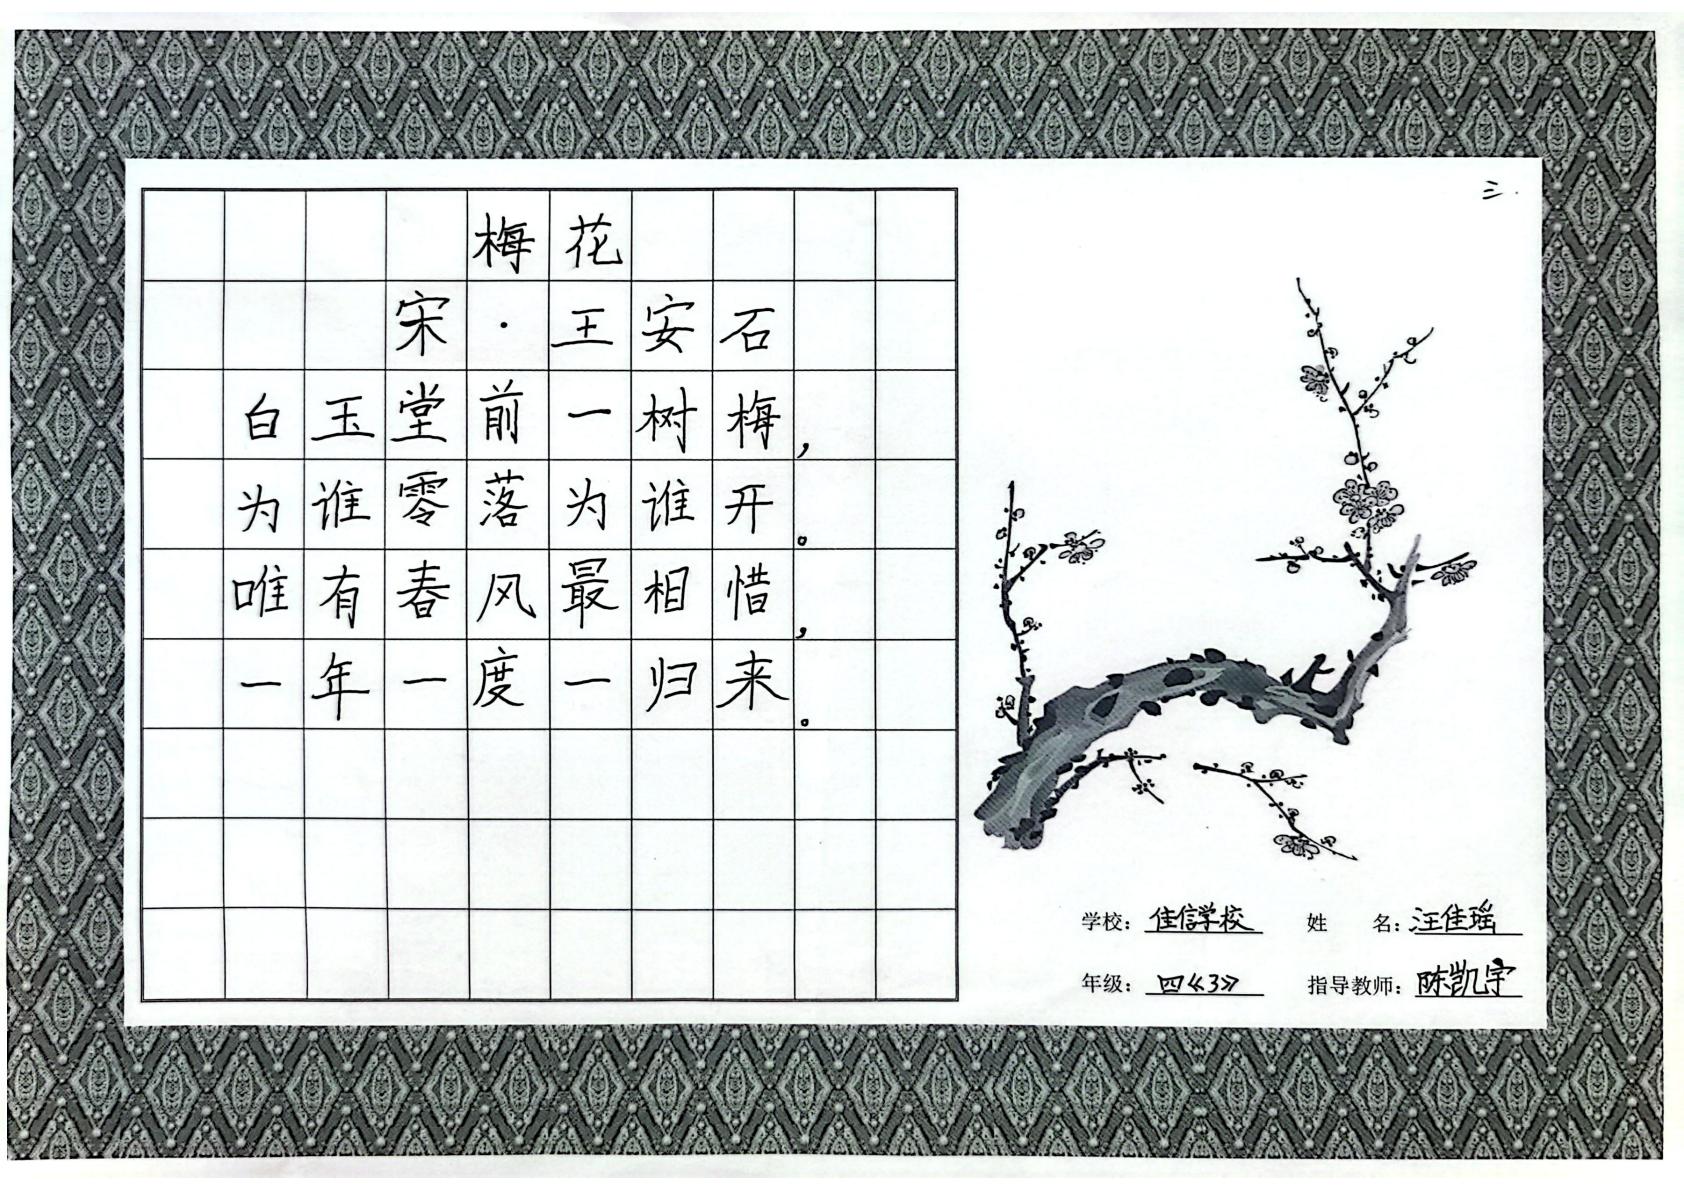 三.
梅花
宋·王安石
白玉堂前一树梅，
为谁零落为谁开。
唯有春风最相惜，
一年一度一归来。
学校：佳信学校 姓名：汪佳瑶
年级：四《3》 指导教师：陈凯宇